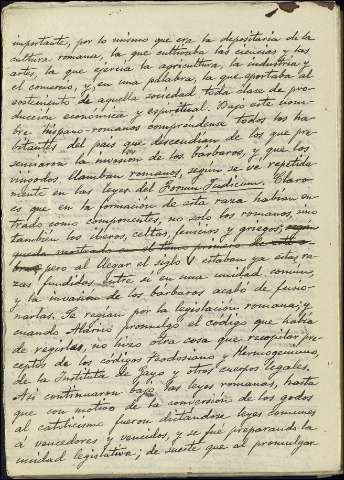 importante, por lo mismo que era la depositaria de la
cultura romana, la que cultivaba las ciencias y las
artes, la que ejercía la agricultura, la industria y
el comercio, y, en una palabra, la que aportaba al
sostenimiento de aquella sociedad toda clase de pro-
ducción económica y espiritual. Bajo este nom-
bre hispano-romanos comprendense todos los ha-
bitantes del país que descendían de los que pre-
senciaron la invasión de los bárbaros, y que los
visigodos llamban romanos, segun se vé repetida
mente en las leyes del Forum Judicum. Claro
es que en la formación de esta raza habían en-
trado como componentes, no solo los romanos, sino
también los iberos, celtas, fenicios y griegos, segun
queda
pero al llegar el siglo V estaban ya estas ra-
zas fundidas entre sí en una unidad comun,
y la invasion de los bárbaros acabó de fusio-
narlas. Se regian por la legislación romana; y
cuando Alarico promulgó el codigo que había
de regirlos, no hizo otra cosa que recopilar pre-
ceptos de los códigos Teodosiano y Hermogeniano,
de la Instituta de Gayo y otros cuerpos legales.
Asi continuaron bajo las leyes romanas, hasta
que con motivo de la conversión de los godos
al catolicismo fueron dictandose leyes comunes
á vencedores y vencidos, y se fué preparando la
unidad legislativa; de suerte que al promulgar